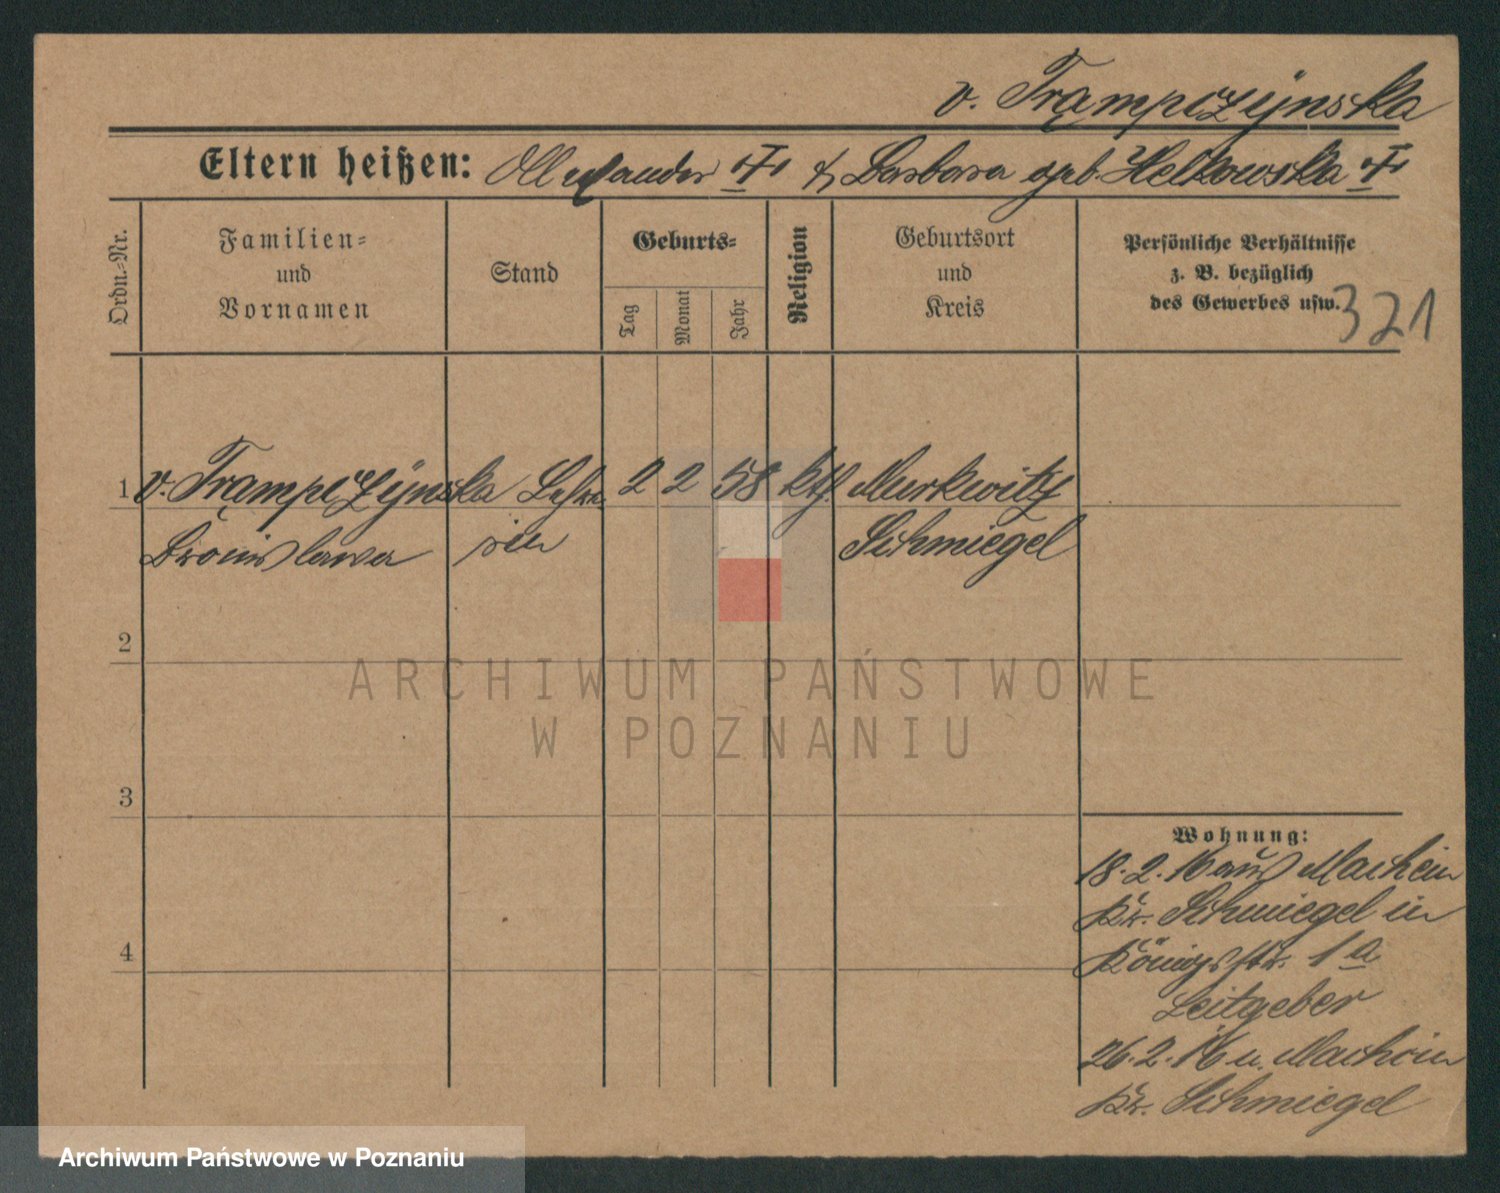 v. Trąmpczÿnska
Eltern heißen: Allexander † & Barbara geb. Helkowska †
Ordn.-Nr.
Familien-
und
Vornamen
Stand
Geburts-
Tag
Monat
Jahr
Religion
Geburtsort
und
Kreis
Persönliche Verhältnisse
z. B. bezüglich
des Gewerbes usw.
321
1 v. Trąmpczÿnska Lehre 2 2 58 kth. Murkwitz
Bronislawa rin Schmiegel
2
3
4
Wohnung:
18.2.16 aus Machcin
Kr. Schmiegel in
Königsstr. 1a
Leitgeber
26.2.16 n. Machcin
Kr. Schmiegel
ARCHIWUM PAŃSTWOWE
W POZNANIU
Archiwum Państwowe w Poznaniu